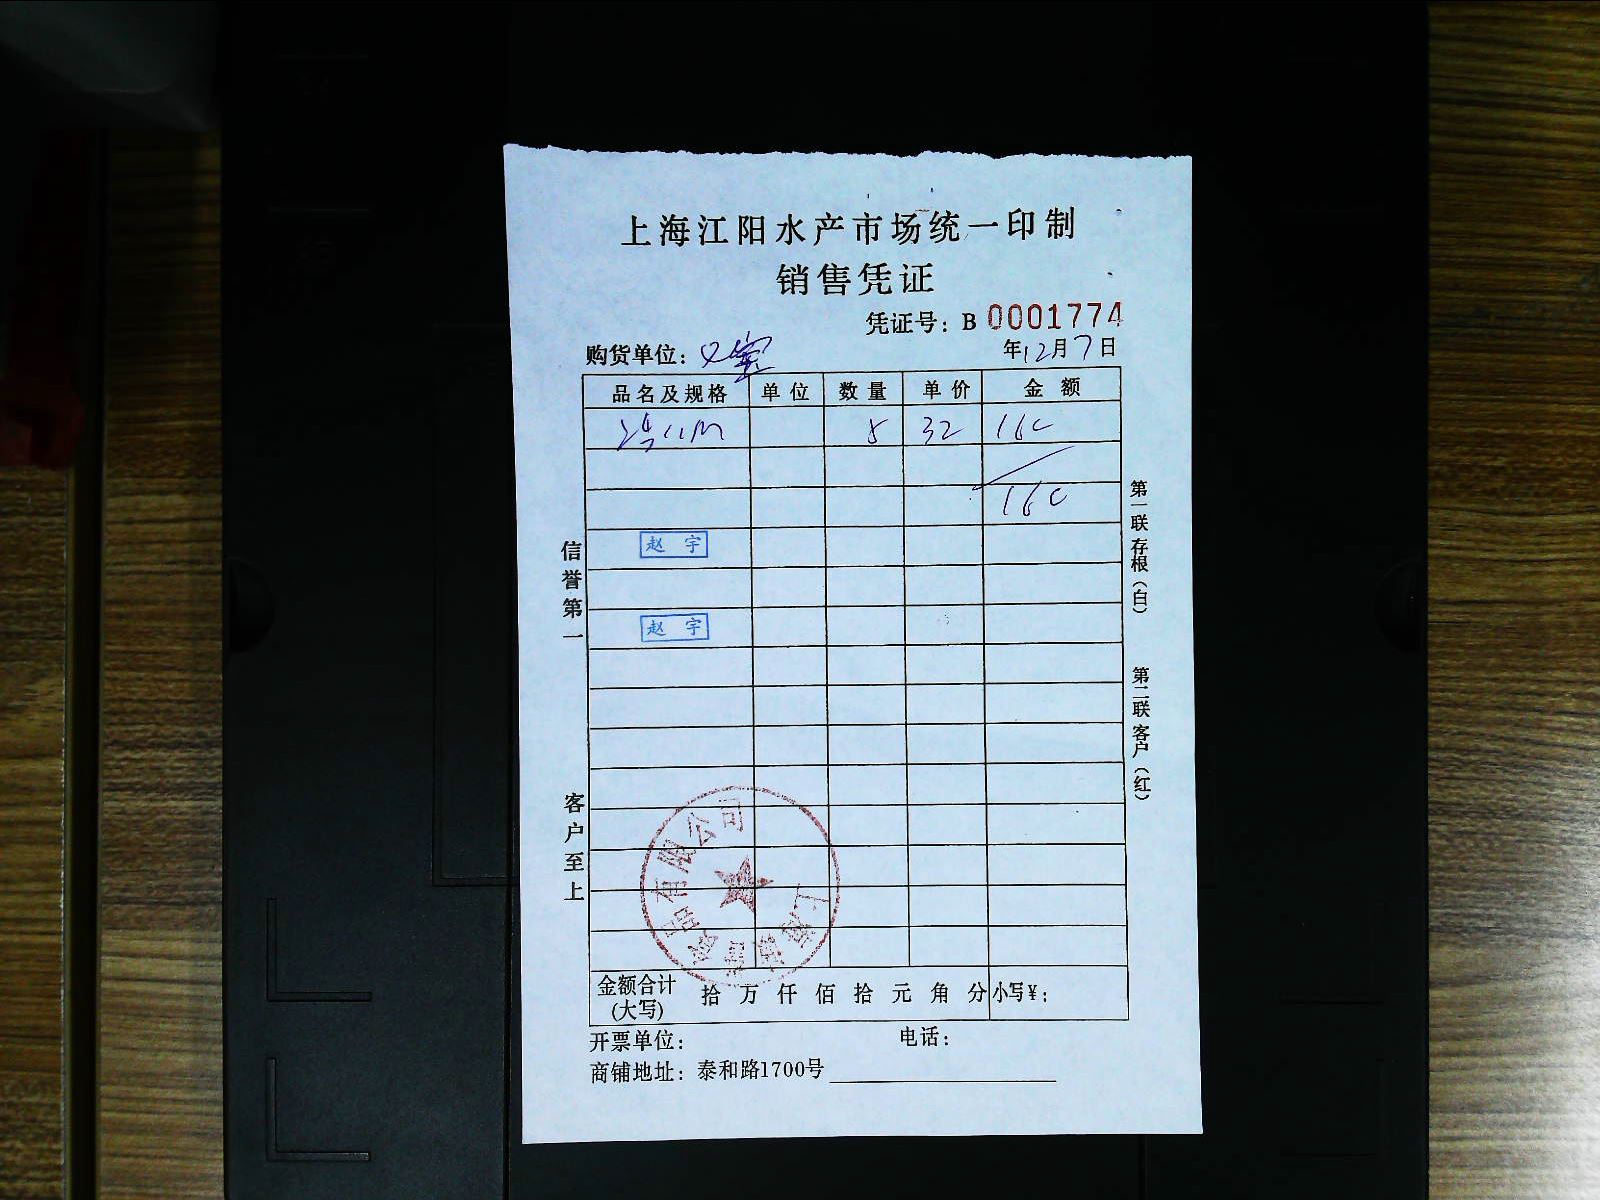 上海江阳水产市场统一印制
销售凭证
凭证号：B 0001774
购货单位：
年12月7日
品名及规格 单位 数量 单价 金额
5 32 160
160
赵 宇
赵 宇
信誉第一
客户至上
第一联存根（白）
第二联客户（红）
上海 食品有限公司
金额合计(大写) 拾 万 仟 佰 拾 元 角 分 小写¥：
开票单位： 电话：
商铺地址：泰和路1700号